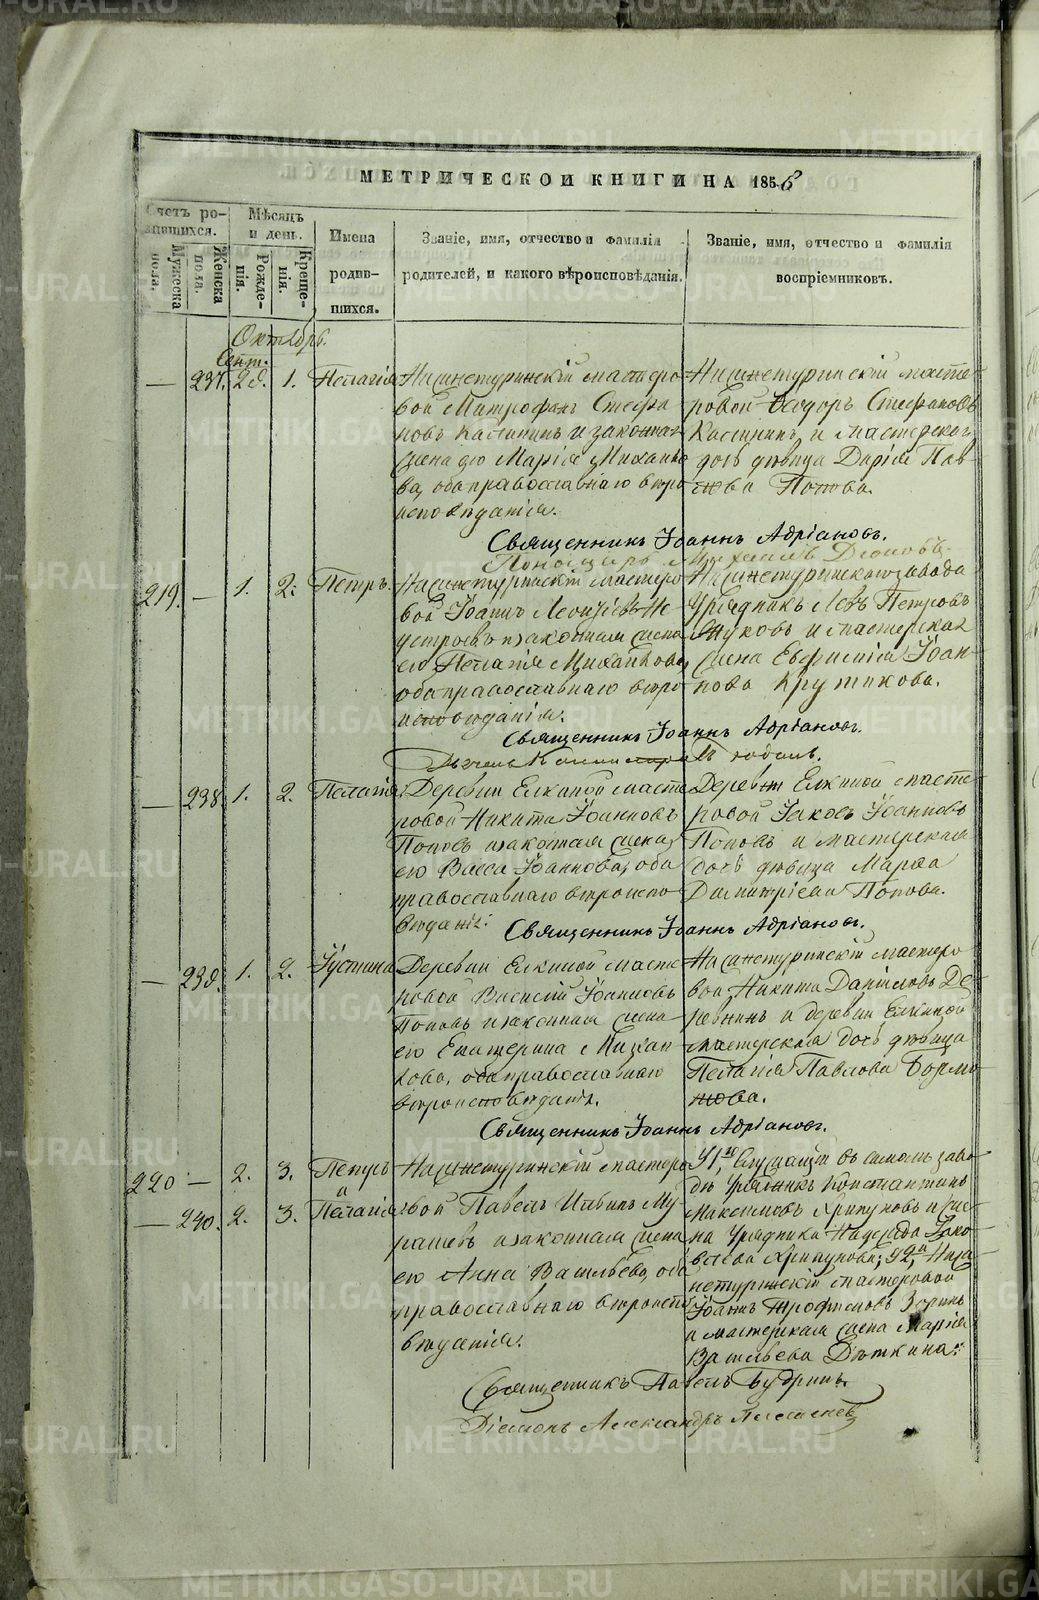 МЕТРИЧЕСКОЙ КНИГИ НА 1856
Счетъ родившихся.
Мужеска пола.
Женска пола.
Мѣсяцъ и день.
Рожденія.
Крещенія.
Имена родившихся.
Званіе, имя, отчество и фамилія родителей, и какого вѣроисповѣданія.
Званіе, имя, отчество и фамилія воспріемниковъ.
Октябрь.
Сент.
— 237. 28. 1. Пелагія
Нижнетуринскій мастеро-
вой Митрофанъ Стефа-
новъ Калининъ и законная
жена его Марія Михайло-
ва, оба православнаго вѣро-
исповѣданія.
Нижнетуринскій масте-
ровой Ѳеодоръ Стефановъ
Калининъ и мастерская
дочь дѣвица Дарія Пав-
лова Попова.
Священникъ Іоаннъ Адріановъ.
219. — 1. 2. Петръ.
Нижнетуринскій мастеро-
вой Іоаннъ Леонтіевъ Не-
устроевъ и законная жена
его Пелагія Михайлова,
оба православнаго вѣро-
исповѣданія.
Нижнетуринскаго завода
Урядникъ Левъ Петровъ
и мастерская
жена Евфимія Іоан-
нова Крутикова.
Священникъ Іоаннъ Адріановъ.
— 238. 1. 2. Пелагія
Деревни Елкиной масте-
ровой Никита Іоанновъ
Поповъ и законная жена
его Васса Іоаннова, оба
православнаго вѣроиспо-
вѣданія.
Деревни Елкиной масте-
ровой Іаковъ Іоанновъ
Поповъ и мастерская
дочь дѣвица Марѳа
Димитріева Попова.
Священникъ Іоаннъ Адріановъ.
— 239. 1. 2. Іустина
Деревни Елкиной масте-
ровой Василій Іоанновъ
Поповъ и законная жена
его Екатерина
оба православнаго
вѣроисповѣданія.
Нижнетуринскій мастеро-
вой Никита Даніиловъ Де-
ревнинъ и деревни Елкиной
мастерская дочь дѣвица
Пелагія Павлова Бормо-
това.
Священникъ Іоаннъ Адріановъ.
220 — 2. 3. Петръ
и
— 240. 2. 3. Пелагія
Нижнетуринскій мастеро-
вой Павелъ Му-
рашевъ и законная жена
его Анна Васильева, оба
православнаго вѣроиспо-
вѣданія.
У 1го, Служащій въ семъ заво-
дѣ Урядникъ Константинъ
Максимовъ Хрипуновъ и же-
на Урядника Надежда Яко-
влева Хрипунова; У 2й, Ниж-
нетуринскій мастеровой
Іоаннъ Трофимовъ Зоринъ
и мастерская жена Марія
Васильева Дѣткина.
Священникъ Павелъ Будринъ.
Діаконъ Александръ
METRIKI.GASO-URAL.RU